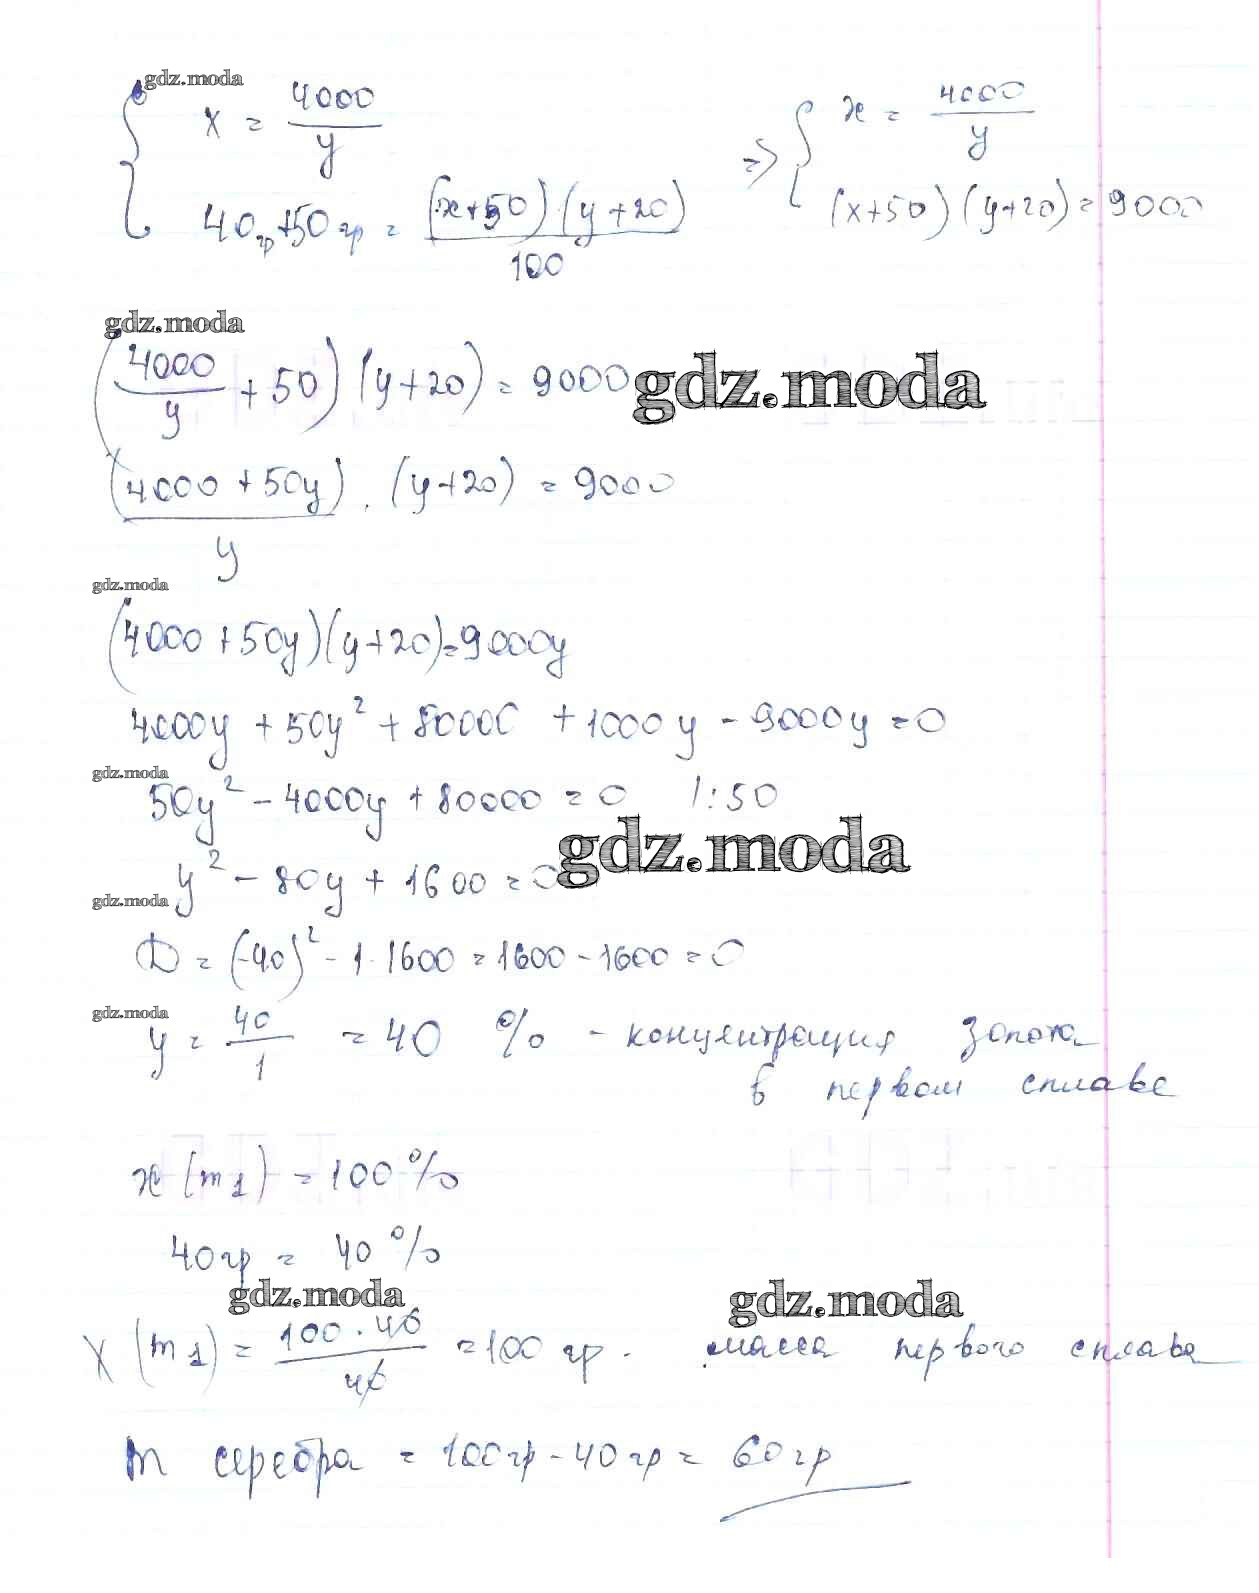 gdz.moda
x = 4000/y => x = 4000/y
40гр+50гр = (x+50)(y+20)/100 (x+50)(y+20)=9000
gdz.moda
(4000/y + 50)(y+20) = 9000
gdz.moda
(4000+50y)/y · (y+20) = 9000
gdz.moda
(4000+50y)(y+20)=9000y
4000y + 50y² + 80000 + 1000y - 9000y = 0
gdz.moda
50y² - 4000y + 80000 = 0 |:50
gdz.moda
y² - 80y + 1600 = 0
gdz.moda
D = (-40)² - 1·1600 = 1600 - 1600 = 0
gdz.moda
y = 40/1 = 40 % - концентрация золота
в первом сплаве
x (m1) = 100%
40гр = 40%
gdz.moda
gdz.moda
x (m1) = 100·40/40 = 100 гр. масса первого сплава
m серебра = 100гр - 40гр = 60гр